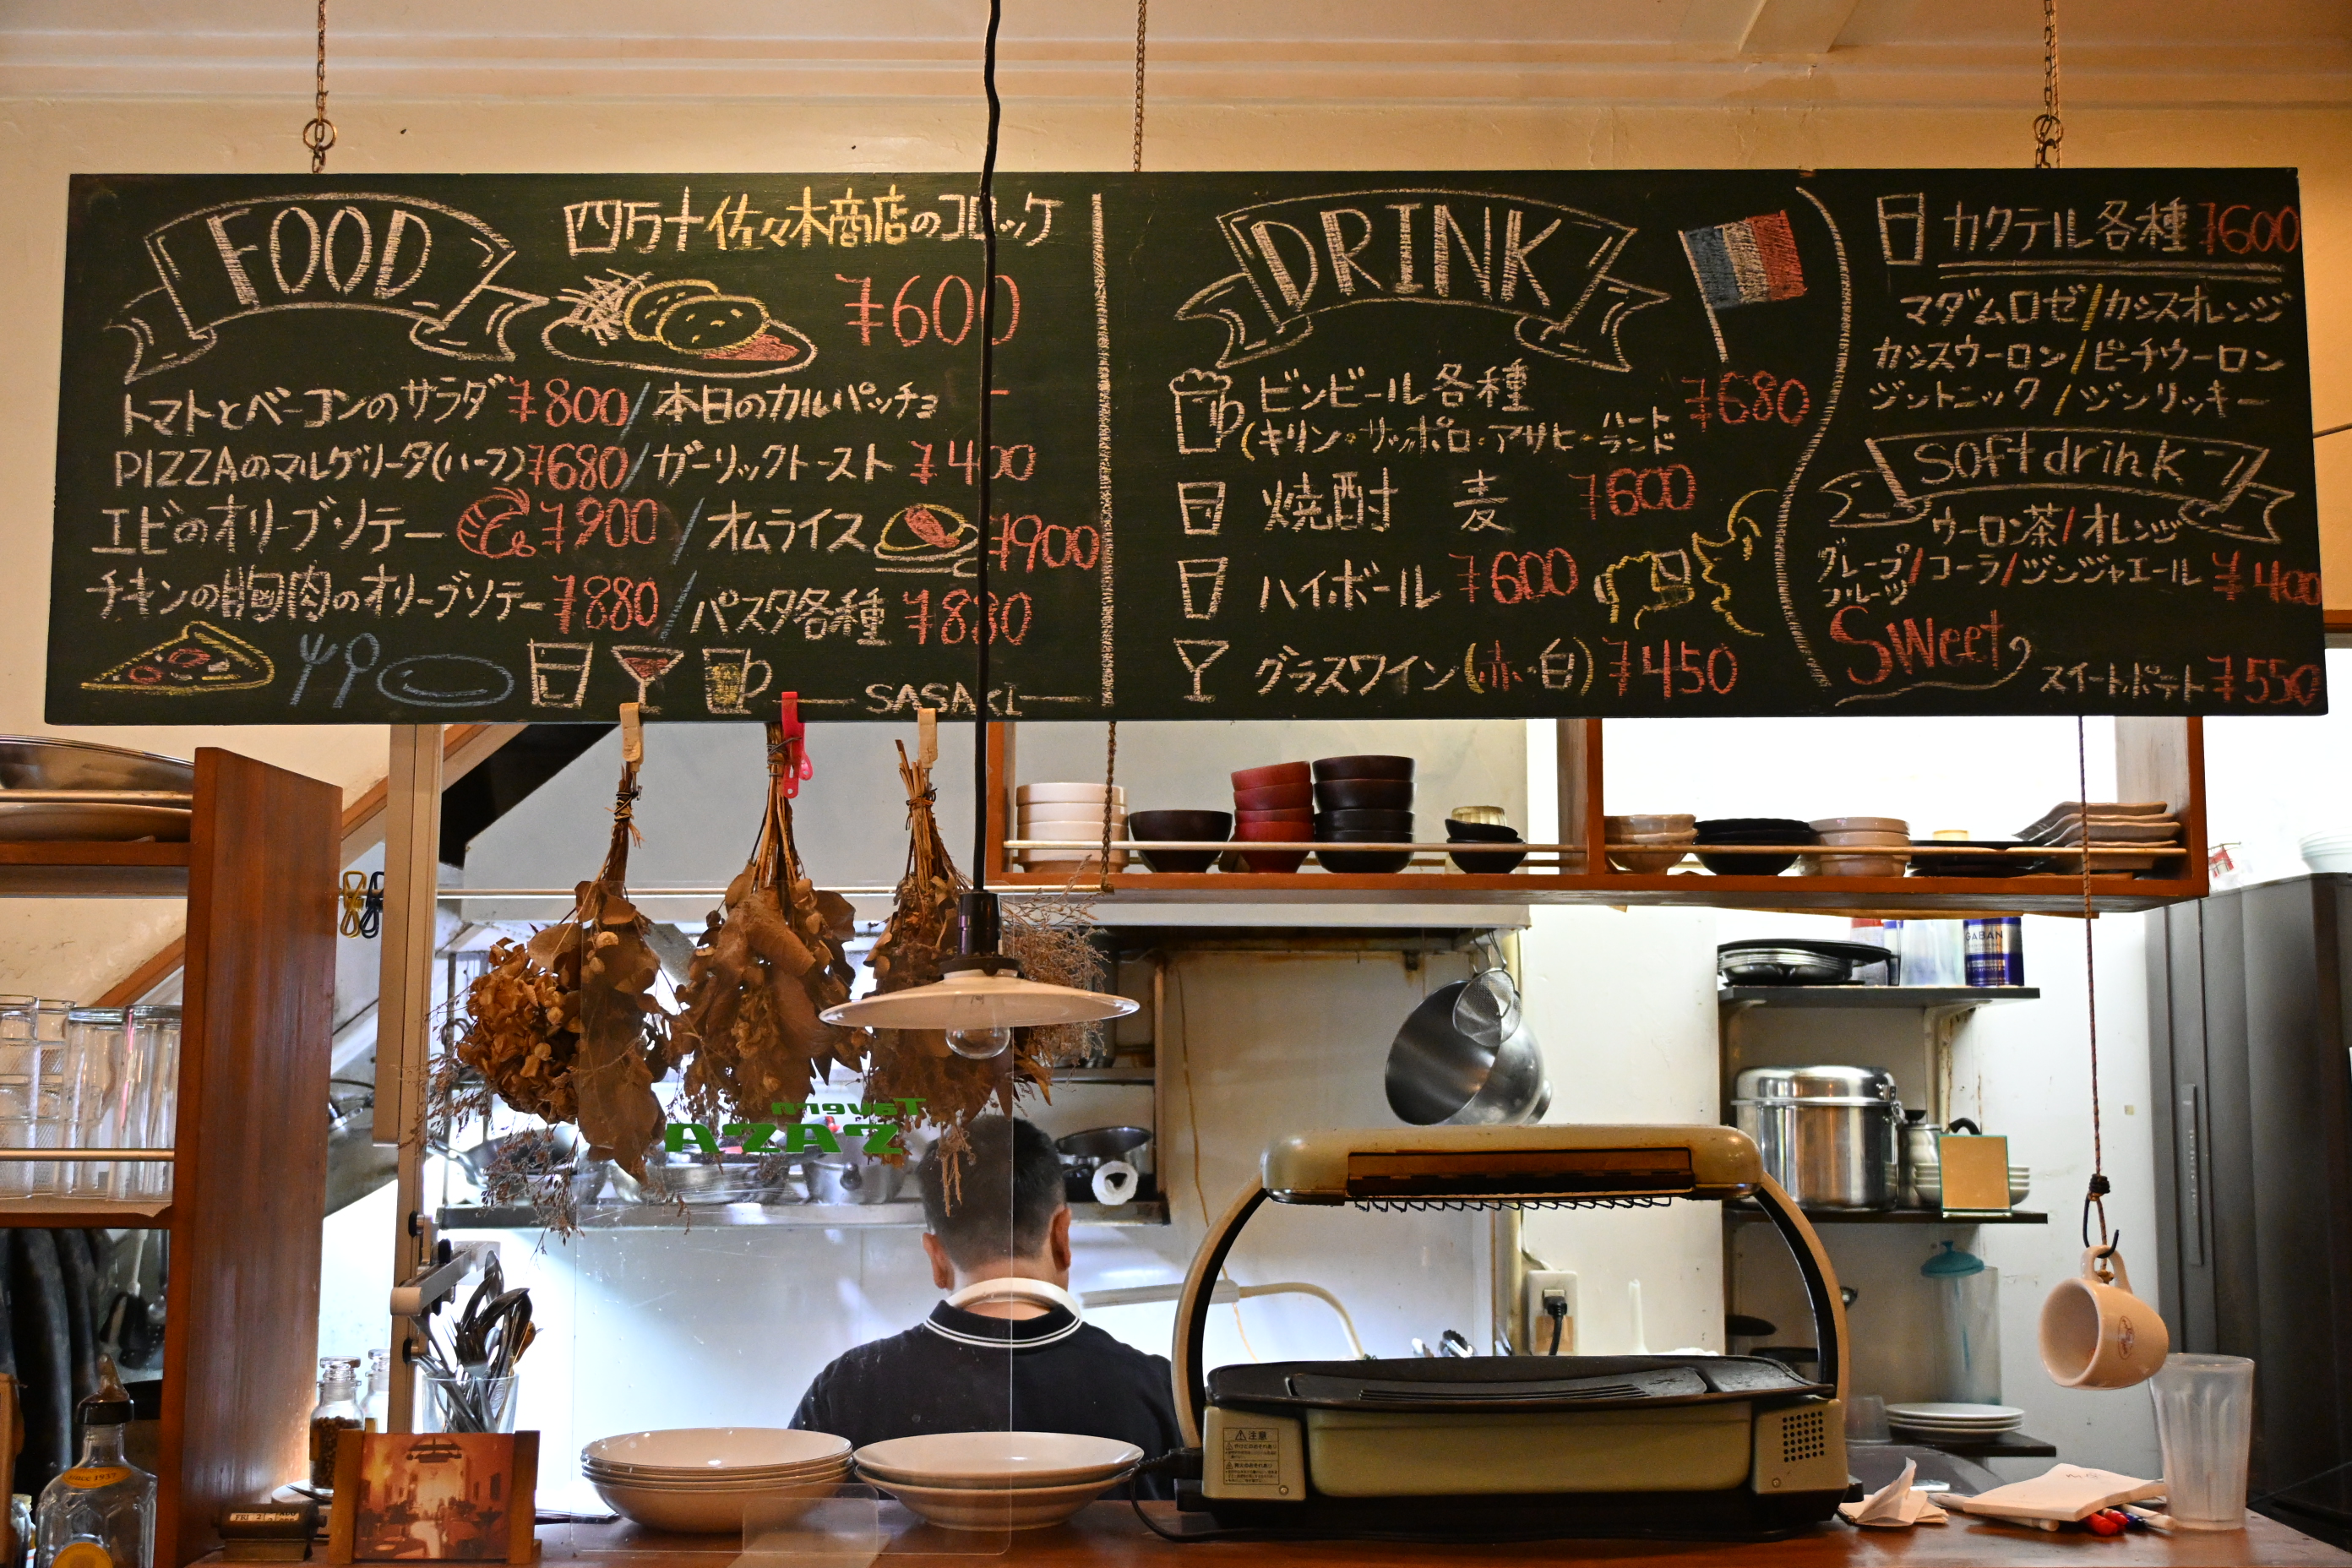 FOOD
四万十佐々木商店のコロッケ
¥600
トマトとベーコンのサラダ ¥800 / 本日のカルパッチョ
PIZZAのマルゲリータ(ハーフ) ¥680 / ガーリックトースト ¥400
エビのオリーブソテー ¥900 / オムライス ¥900
チキンの胸肉のオリーブソテー ¥880 / パスタ各種 ¥880
SASAKI
DRINK
ビンビール各種 ¥680
(キリン・サッポロ・アサヒ・ハートランド
焼酎 麦 ¥600
ハイボール ¥600
グラスワイン(赤・白) ¥450
カクテル各種 ¥600
マダムロゼ/カシスオレンジ
カシスウーロン/ピーチウーロン
ジントニック/ジンリッキー
Soft drink
ウーロン茶/オレンジ
グレープフルーツ/コーラ/ジンジャエール ¥400
Sweet
スイートポテト ¥550
GABAN
Tavern
ZAZA
注意
since 1937
FRI